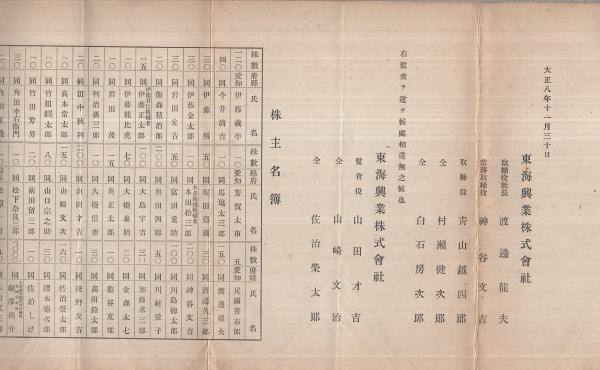 大正八年十一月三十日
東海興業株式會社
取締役社長 渡邊龍夫
常務取締役 神谷文吉
取締役 青山鉞四郎
仝 村瀬健次郎
仝 白石房次郎
右監査ヲ遂ケ候處相違無之候也
東海興業株式會社
監査役 山田才吉
仝 山崎文治
仝 佐治榮太郎
株主名簿
株數 府縣 氏名
一二〇 愛知 伊藤義平
四〇 同 今井清吉
三〇 同 伊藤房
二〇 同 伊藤金太郎
三〇 同 岩田定吉
二〇 同 飯森積治郎
一五 同 伊藤正太郎
一〇 同 伊藤龍比虎
一〇 同 岩田茂
三〇 同 判治孫三郎
二〇 同 田中秋
一〇 同 高木常太郎
一〇 同 竹田鎮太郎
一〇 同 竹田芳男
三〇 同 角田幸右衞門
株數 府縣 氏名
一〇 愛知 芳賀太市
一〇 同 馬場太三郎
五〇 同
本田松三郎
五〇 同 富田重助
二〇〇 同 奥田四郎
五〇 同 大島宇吉
七〇 同 大橋泰助
五〇 同 奥正太郎
一〇 同 大橋信市
二〇〇 同 山田才吉
一五〇 同 山崎文次
八〇 同 山口宗之助
二〇 同 前田留三郎
一〇 同 松下奈良三郎
株數 府縣 氏名
五 愛知 足園喜市郎
五〇 同 渡邊龍夫
三〇 同 渡邊久三郎
二〇〇 同 神谷文吉
一〇〇 同 川島德太郎
五〇 同 川村愛子
三〇 同 加藤米三郎
二〇 同 金森太七
一〇 同 龜谷寬雄
一〇 同 高田鈴太郎
二〇 同 淺野友吉
一六〇 同 佐治榮太郎
二〇 同 櫻木龜次郎
一〇 同 佐治しげ